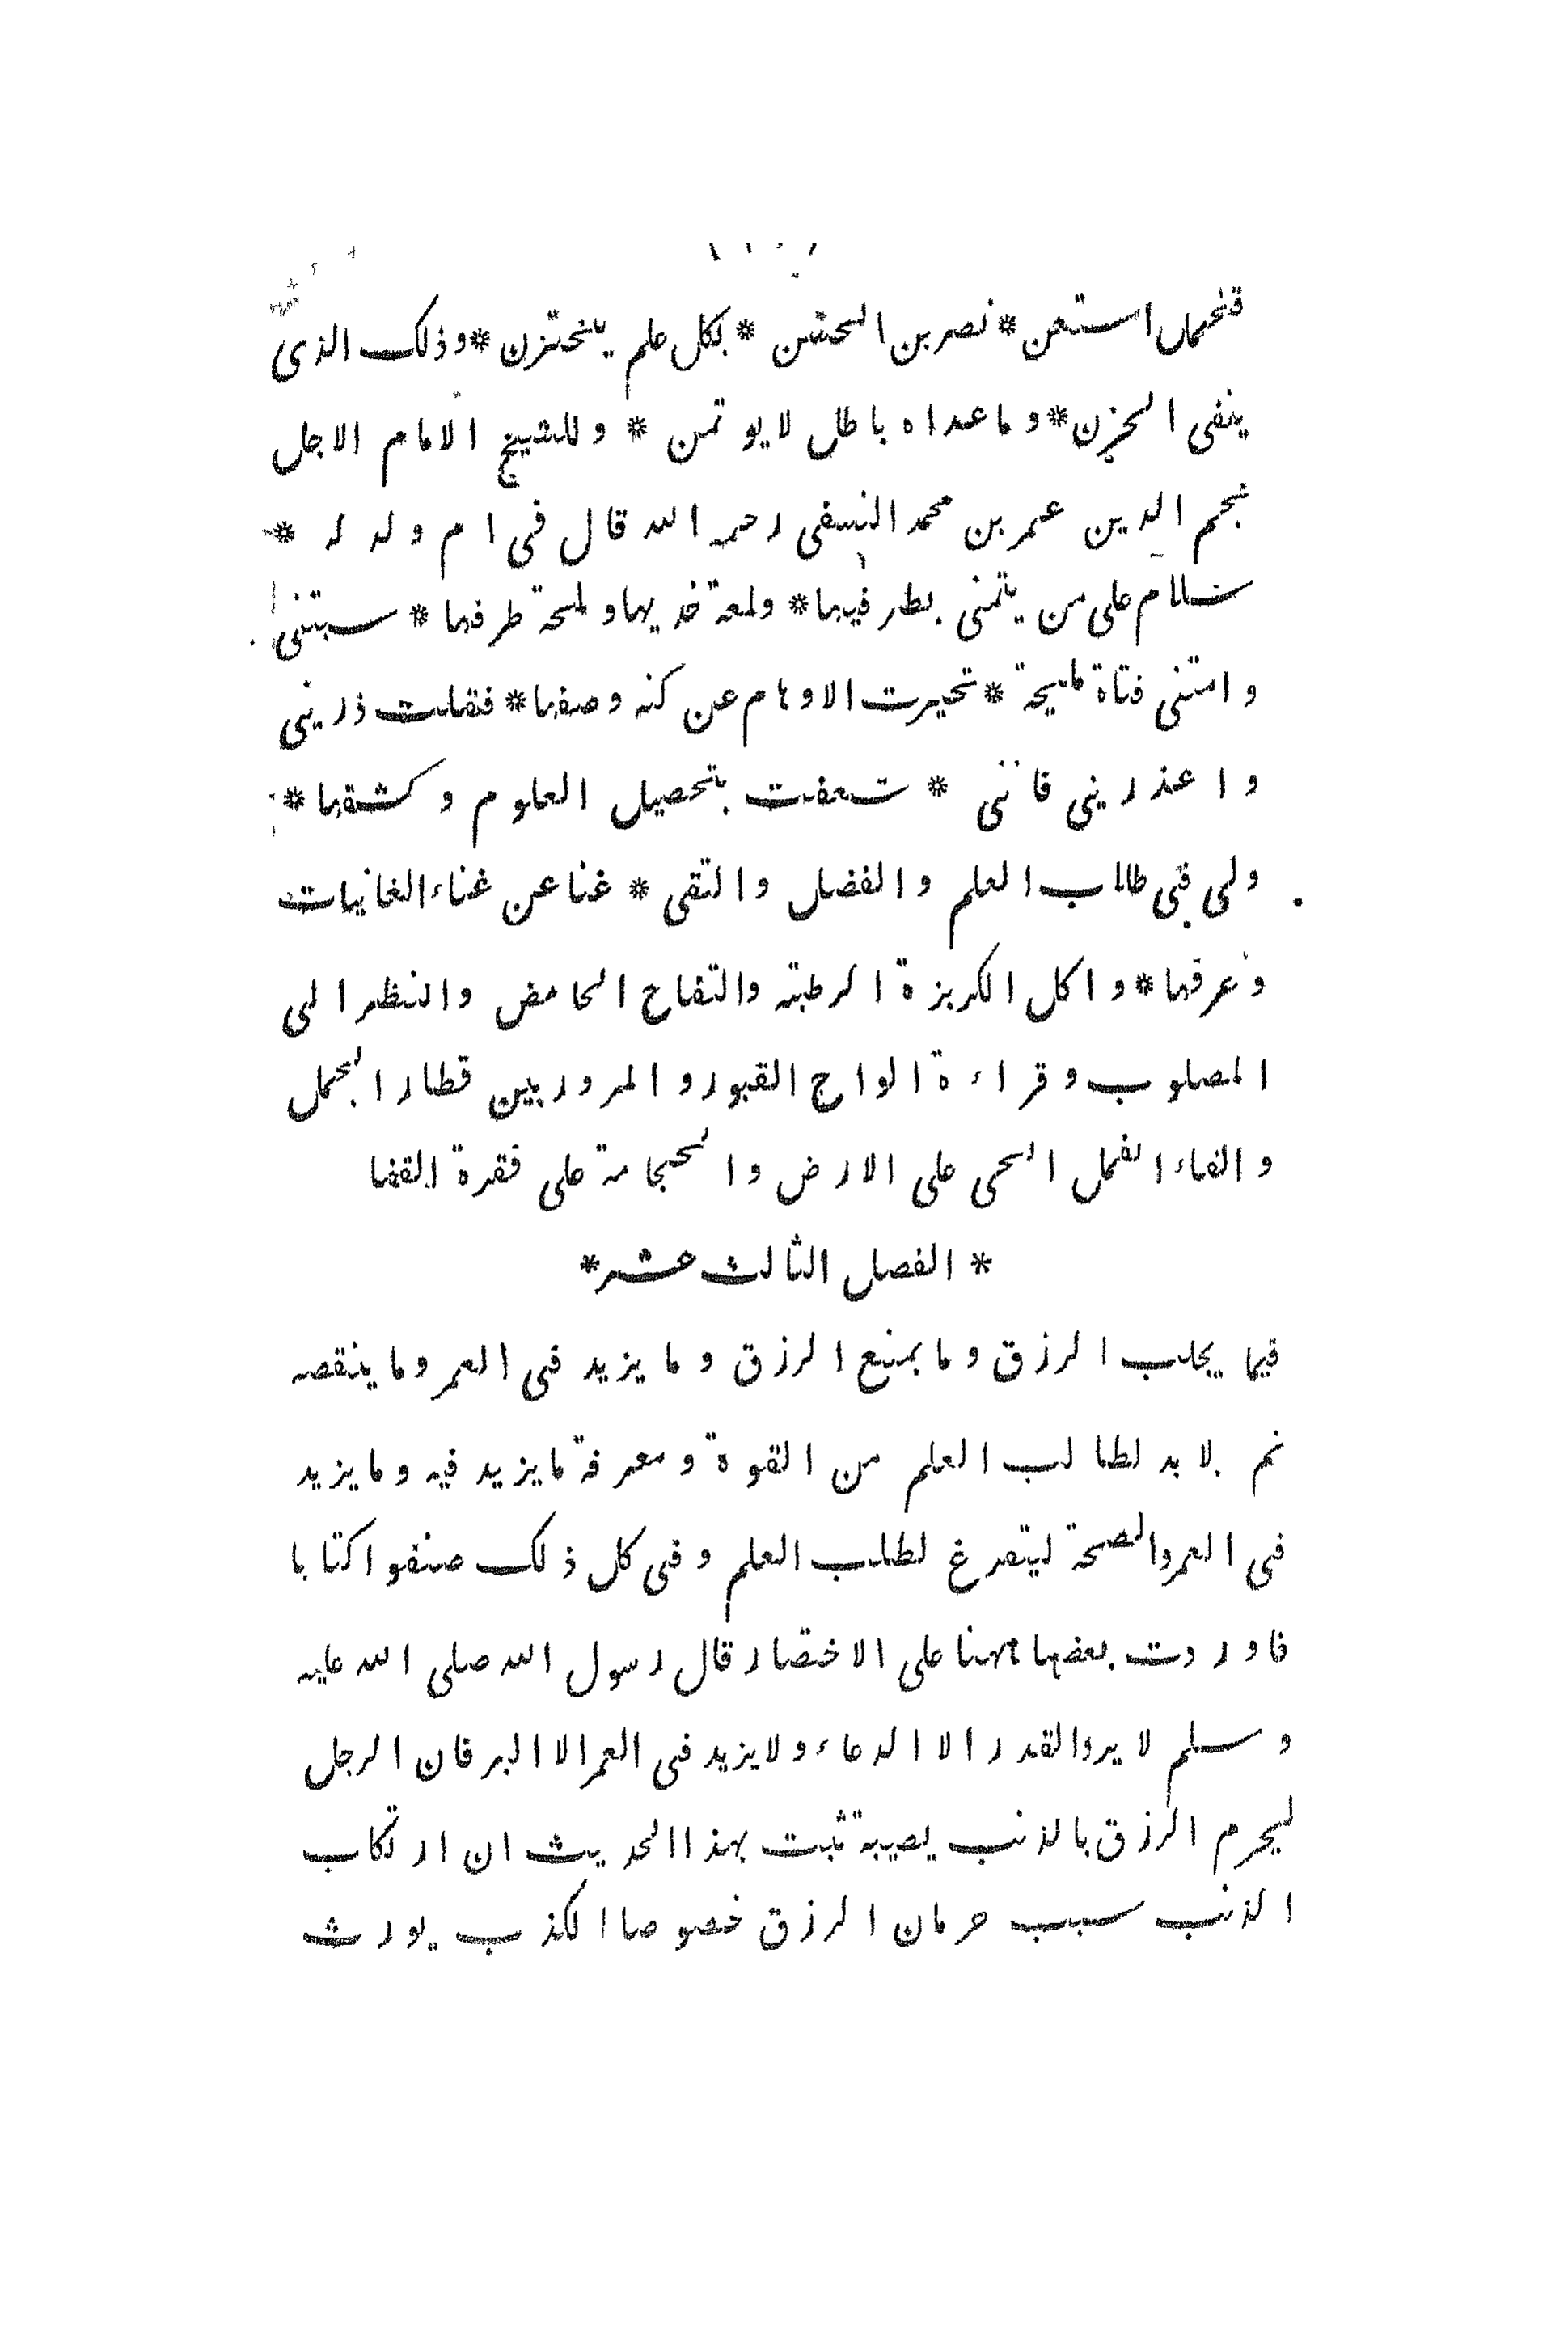 استعن * نصر بن الحسن * بكل علم يختزن * وذلك الذى
ينفى الحزن * وما عداه باطل لايوتمن * وللشيخ الامام الاجل
نجم الدين عمر بن محمد النسفى رحمه الله قال فى ام ولد له *
سلام على من يتمنى بظرفيها * ولمعة خديها ولمحة طرفها * سبتنى
وامتنى فتاة مليحة * تحيرت الاوهام عن كنه وصفها * فقلت ذرينى
واعذرينى فاننى * شعفت بتحصيل العلوم وكشفها *
ولى فى طلاب العلم والفضل والتقى * غنا عن غناء الغانيات
وعرفها * واكل الكربزة الرطبته والتفاح الحامض والنظر الى
المصلوب وقراءة الواح القبور والمرور بين قطار الجمل
والقاء القمل الحى على الارض والحجامة على فقرة القفا
* الفصل الثالث عشر *
فيما يجلب الرزق وما يمنع الرزق وما يزيد فى العمر وما ينقصه
ثم لا بد لطالب العلم من القوة ومعرفة ما يزيد فيه وما يزيد
فى العمر والصحة ليتفرغ لطلب العلم وفى كل ذلك صنفوا كتابا
فاوردت بعضها ههنا على الاختصار قال رسول الله صلى الله عليه
وسلم لا يرد القدر الا الدعاء ولا يزيد فى العمر الا البر فان الرجل
ليحرم الرزق بالذنب يصيبه ثبت بهذا الحديث ان ارتكاب
الذنب سبب حرمان الرزق خصوصا الكذب يورث